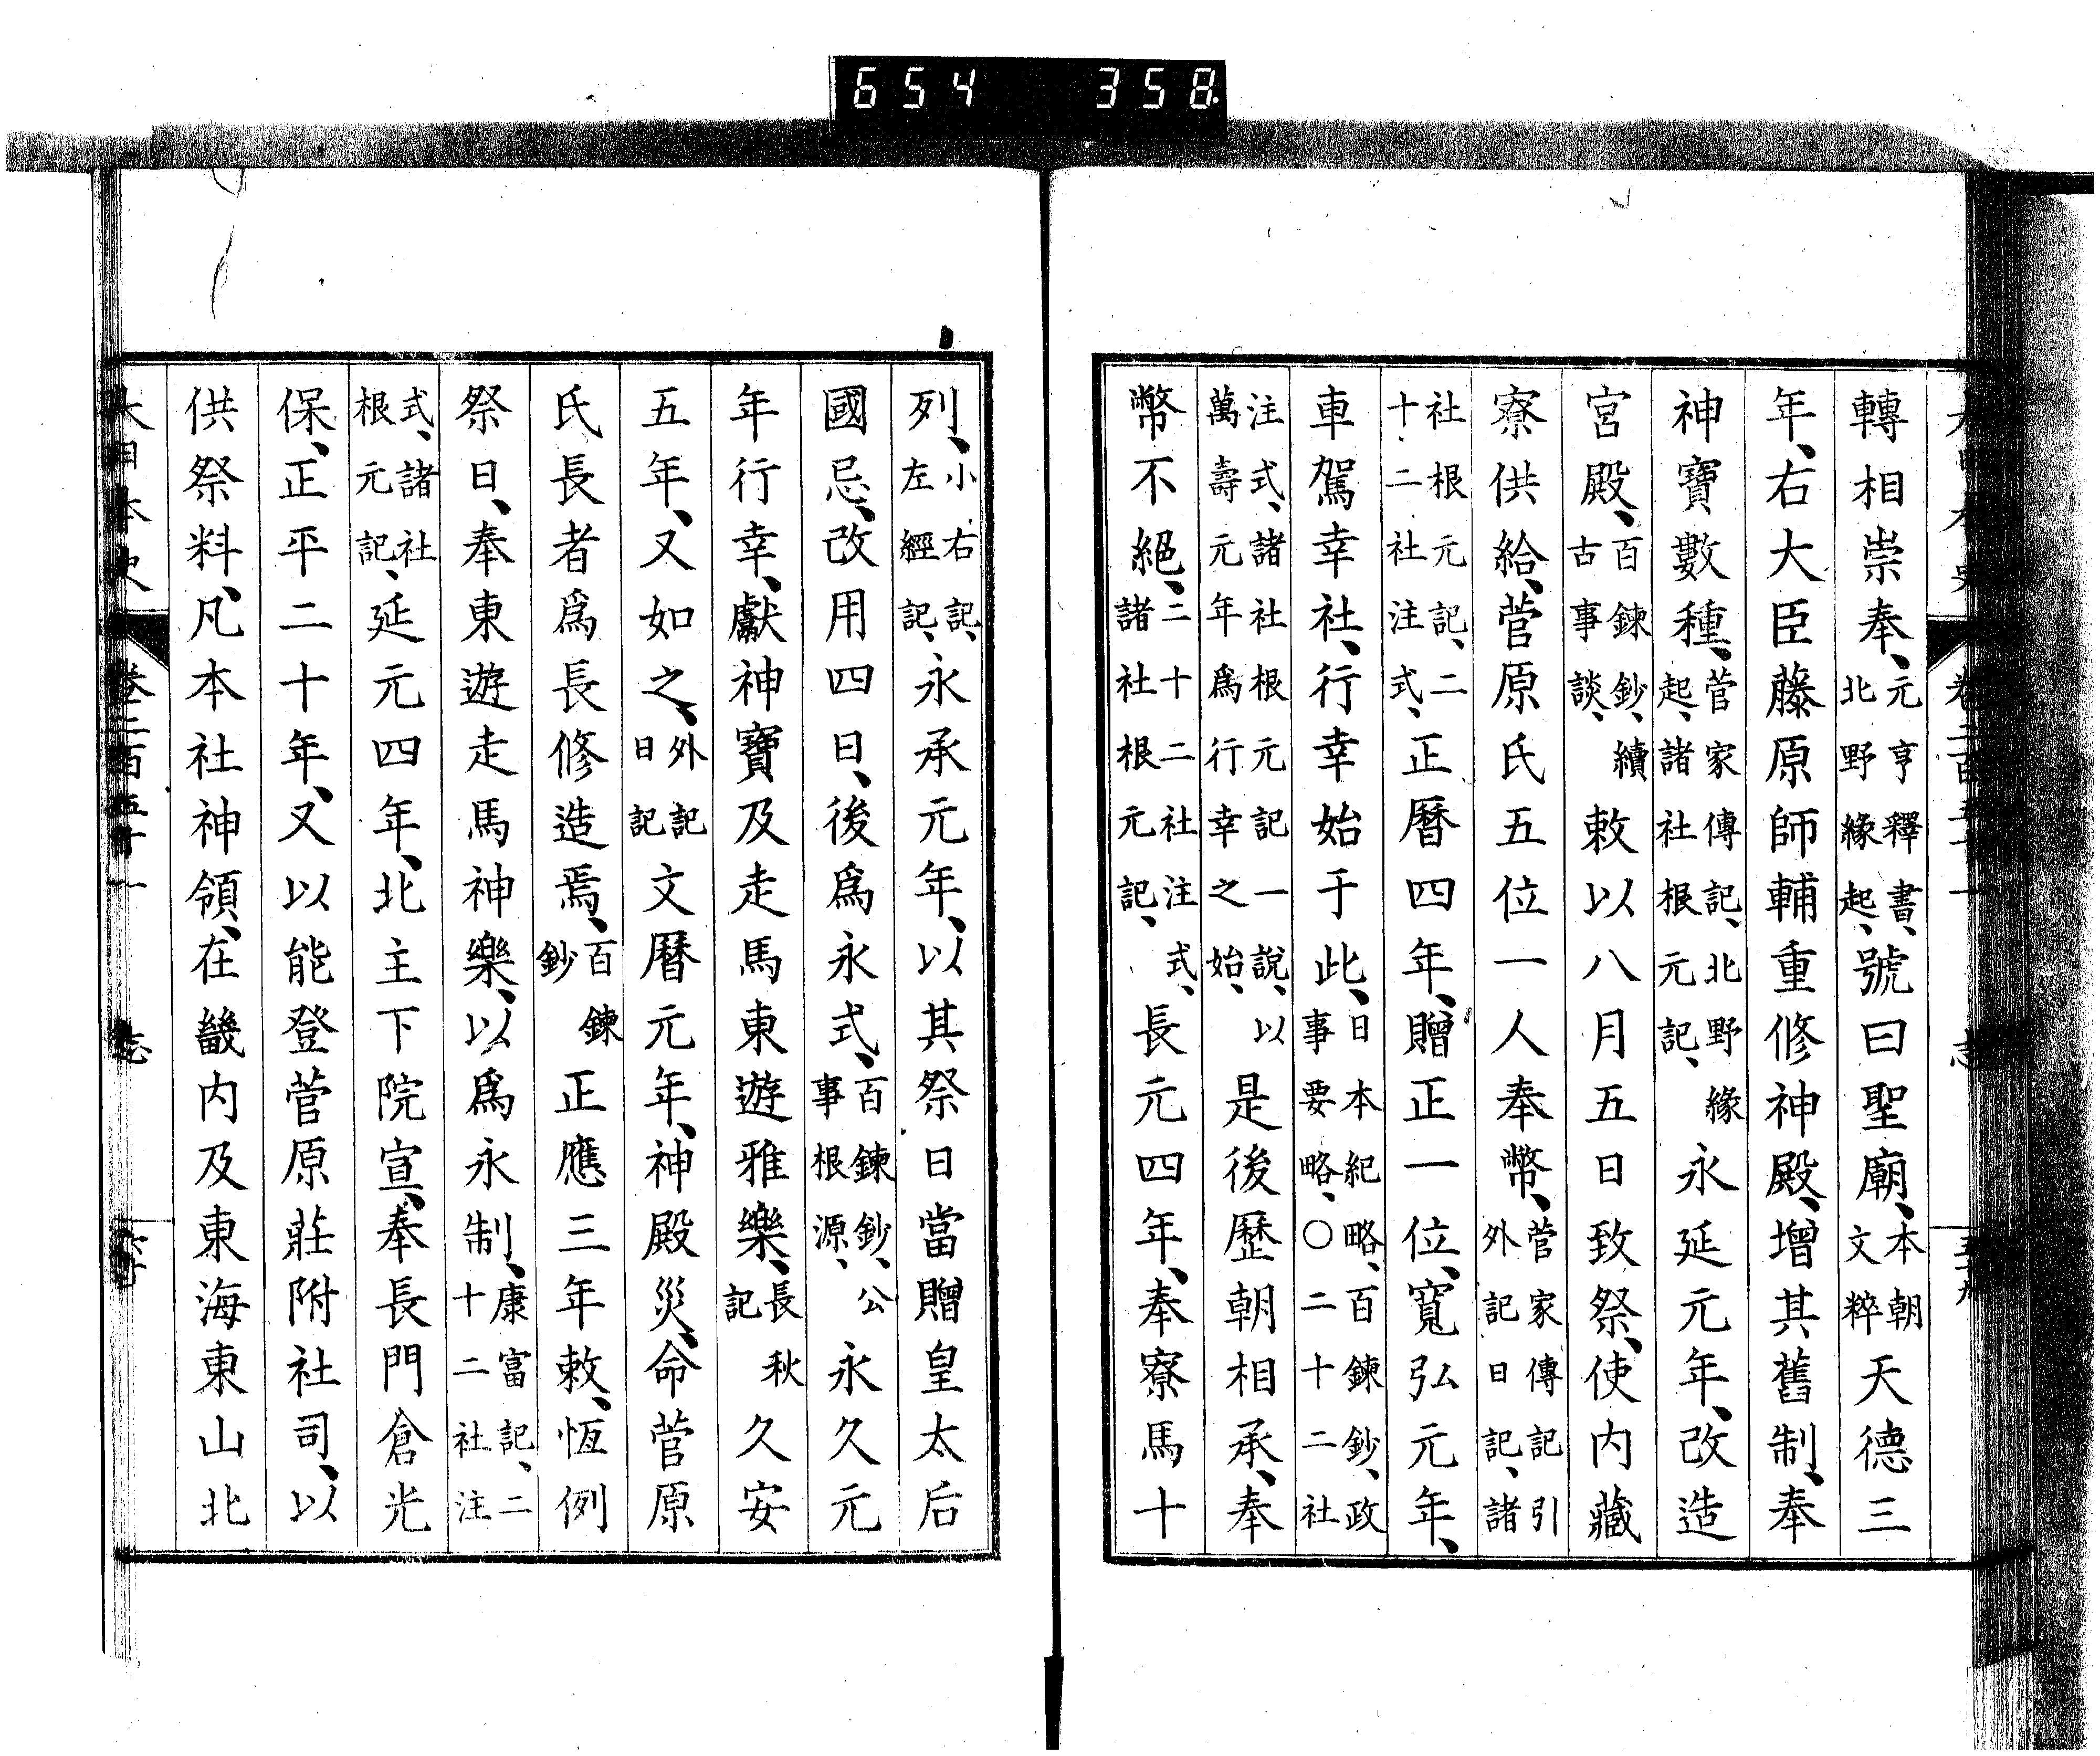 654 358
大日本史 卷二百五十一 志 五十九
轉相崇奉、元亨釋書、北野緣起、號曰聖廟、本朝文粹天德三
年、右大臣藤原師輔重修神殿、增其舊制、奉
神寶數種、菅家傳記、北野緣起、諸社根元記、永延元年、改造
宮殿、百鍊鈔、續古事談、敕以八月五日致祭、使内藏
寮供給、菅原氏五位一人奉幣、菅家傳記引外記日記、諸
社根元記、二十二社注式、正曆四年、贈正一位、寬弘元年、
車駕幸社、行幸始于此、日本紀略、百鍊鈔、政事要略、○二十二社
注式、諸社根元記一說、以萬壽元年爲行幸之始、是後歷朝相承、奉
幣不絕、二十二社注式、諸社根元記、長元四年、奉寮馬十
列、小右記、左經記、永承元年、以其祭日當贈皇太后
國忌、改用四日、後爲永式、百鍊鈔、公事根源、永久元
年行幸、獻神寶及走馬東遊雅樂、長秋記久安
五年、又如之、外記日記文曆元年、神殿災、命菅原
氏長者爲長修造焉、百鍊鈔正應三年敕、恆例
祭日、奉東遊走馬神樂、以爲永制、康富記、二十二社注
式、諸社根元記、延元四年、北主下院宣、奉長門倉光
保、正平二十年、又以能登菅原莊附社司、以
供祭料、凡本社神領、在畿内及東海東山北
大日本史 卷二百五十一 志